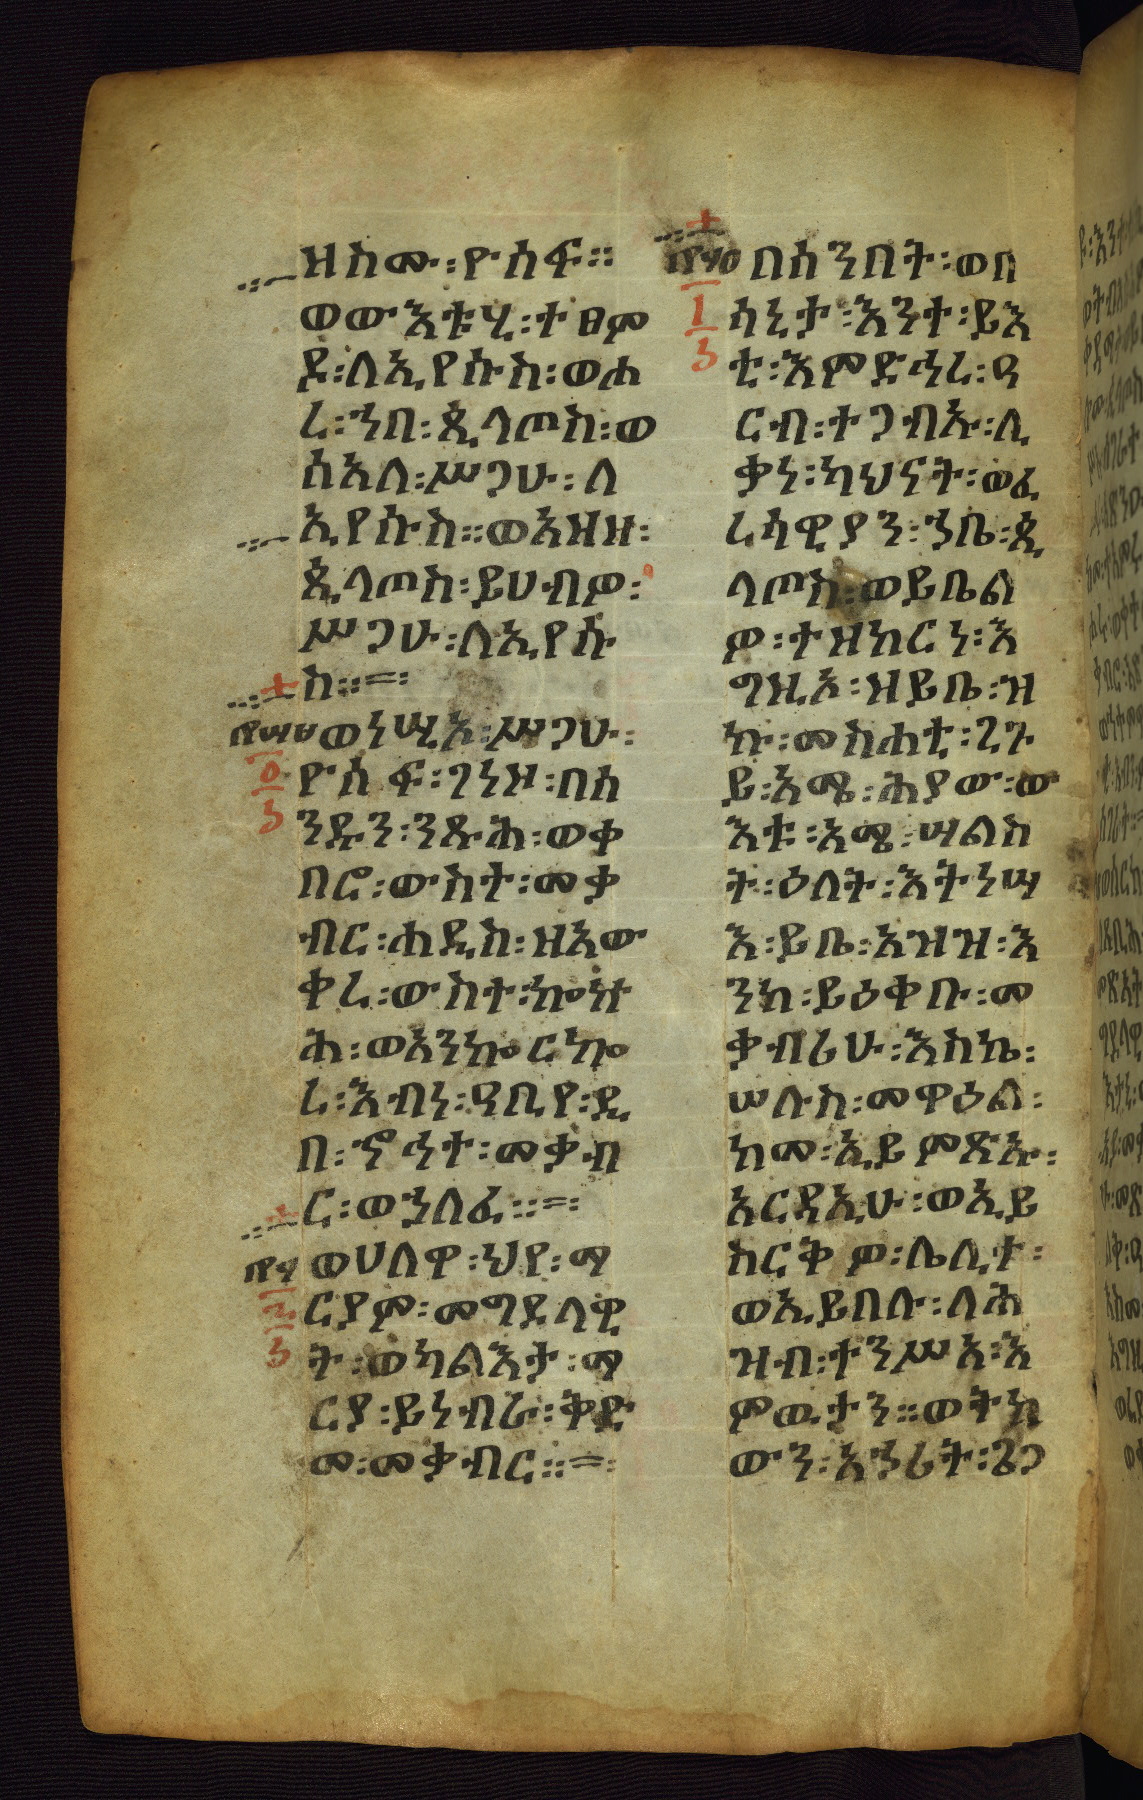 ዝስሙ፡ዮሴፍ።
ወውእቱሂ፡ተፀም
ደ፡ለኢየሱስ፡ወሐ
ረ፡ኀበ፡ጲላጦስ፡ወ
ሰአለ፡ሥጋሁ፡ለ
ኢየሱስ።ወአዘዘ፡
ጲላጦስ፡ይሀብዎ፡
ሥጋሁ፡ለኢየሱ
ስ።=፡
ወነሢአ፡ሥጋሁ፡
ዮሴፍ፡ገነዞ፡በሰ
ንዱን፡ንጹሕ፡ወቀ
በሮ፡ውስተ፡መቃ
ብር፡ሐዲስ፡ዘአው
ቀረ፡ውስተ፡ኰኵ
ሕ፡ወአንኰርኰ
ረ፡እብነ፡ዓቢየ፡ዲ
በ፡ኆኅተ፡መቃብ
ር፡ወኀለፈ።=፡
ወሀለዋ፡ህየ፡ማ
ርያም፡መግደላዊ
ት፡ወካልእታ፡ማ
ርያ፡ይነብራ፡ቅድ
መ፡መቃብር።=፡
በሰንበት፡ወበ
ሳኒታ፡እንተ፡ይእ
ቲ፡እምድኅረ፡ዓ
ርብ፡ተጋብኡ፡ሊ
ቃነ፡ካህናት፡ወፈ
ሪሳዊያን፡ኀበ፡ጲ
ላጦስ፡ወይቤል
ዎ፡ተዝከርነ፡እ
ግዚኦ፡ዝይቤ፡ዝ
ኩ፡መስሐቲ፡ጊጉ
ይ፡አሜ፡ሕያው፡ው
እቱ፡አሜ፡ሣልስ
ት፡ዕለት፡እትነሣ
እ፡ይቤ፡አዝዝ፡እ
ንከ፡ይዕቀቡ፡መ
ቃብሪሁ፡እስከ፡
ሠሉስ፡መዋዕል፡
ከመ፡ኢይምጽኡ፡
አርዳኢሁ፡ወኢይ
ስርቅዎ፡ሌሊተ፡
ወኢይበሉ፡ለሕ
ዝብ፡ተንሥአ፡እ
ምዉታን።ወትከ
ውን፡እኅሪት፡ጌጋ